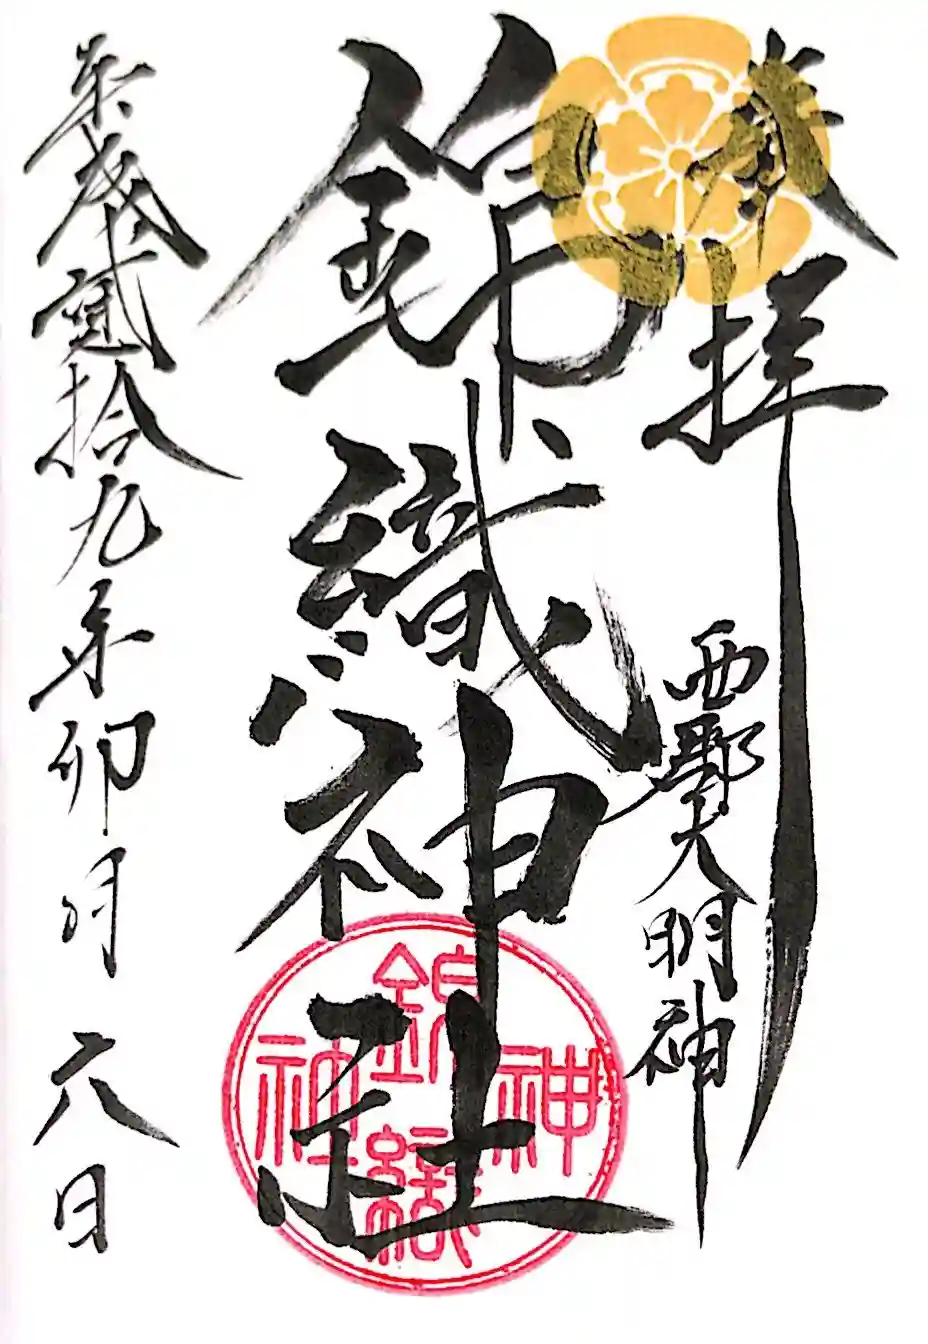 奉拝
西郡大明神
錦織神社
錦織神社
平成貳拾九年卯月六日